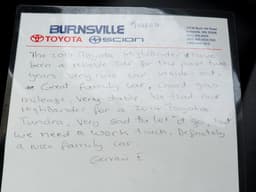 BURNSVILLE
TOYOTA SCION
The 2011 Toyota Highlander, I have
been a reliable ride for the past two
years very nice car inside out.
Great family car. Good gas
mileage. Very durable. We trad our
Highlander for a 2014 Toyota
Tundra, very sad to let it go, but
we need a work truck. Definitely
a nice family car